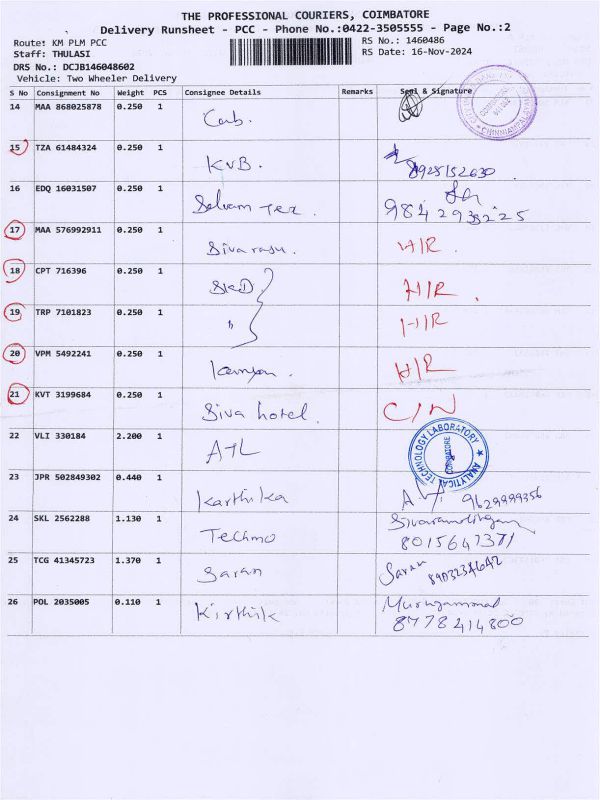 THE PROFESSIONAL COURIERS, COIMBATORE
Delivery Runsheet - PCC - Phone No.:0422-3505555 - Page No.:2
Route: KM PLM PCC
RS No.: 1460486
Staff: THULASI
RS Date: 16-Nov-2024
DRS No.: DCJB146048602
Vehicle: Two Wheeler Delivery
S No Consignment No Weight PCS Consignee Details Remarks Seal & Signature
14 MAA 868025878 0.250 1 Cab.
15 TZA 61484324 0.250 1 KVB. 8925152630
16 EDQ 16031507 0.250 1 Selvam Tex. 9842938225
17 MAA 576992911 0.250 1 Sivarasu. H/R.
18 CPT 716396 0.250 1 SKD H/R.
19 TRP 7101823 0.250 1 " H/R
20 VPM 5492241 0.250 1 H/R
21 KVT 3199684 0.250 1 Siva hotel. C/N
22 VLI 330184 2.200 1 ATL TECHNOLOGY LABORATORY ★ ANALYTICAL COIMBATORE
23 JPR 502849302 0.440 1 Karthika 9629999356
24 SKL 2562288 1.130 1 Techno Sivaramalingam 8015647371
25 TCG 41345723 1.370 1 Saran Saran 8903234642
26 POL 2035005 0.110 1 Kirthik Murugammal 8778414800